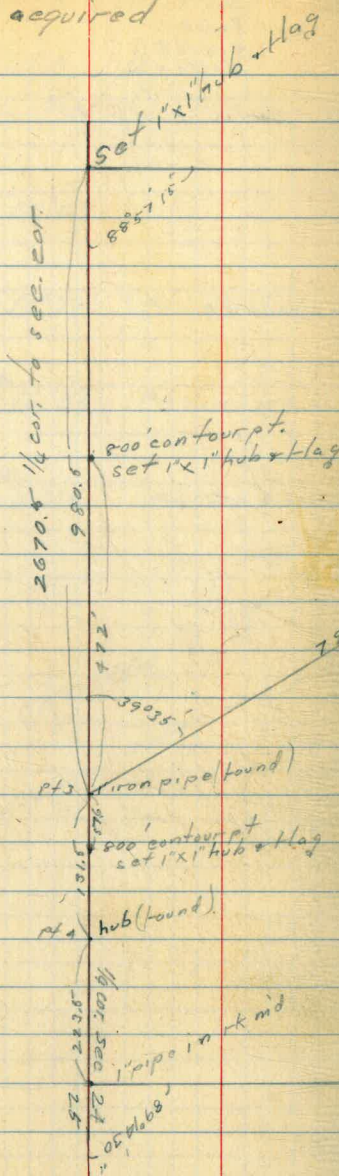 acquired
set 1"x1" hub & flag
88°57'15"
2670.5 1/4 cor. to sec. cor.
980.5
800' contour pt.
set 1"x1" hub & flag
39°35'
pt 3
iron pipe (found)
800' contour pt
set 1"x1" hub & flag
131.5
pt 4
hub (found)
1/4 cor. sec
1" pipe in rk m'd
25
89°14'30"